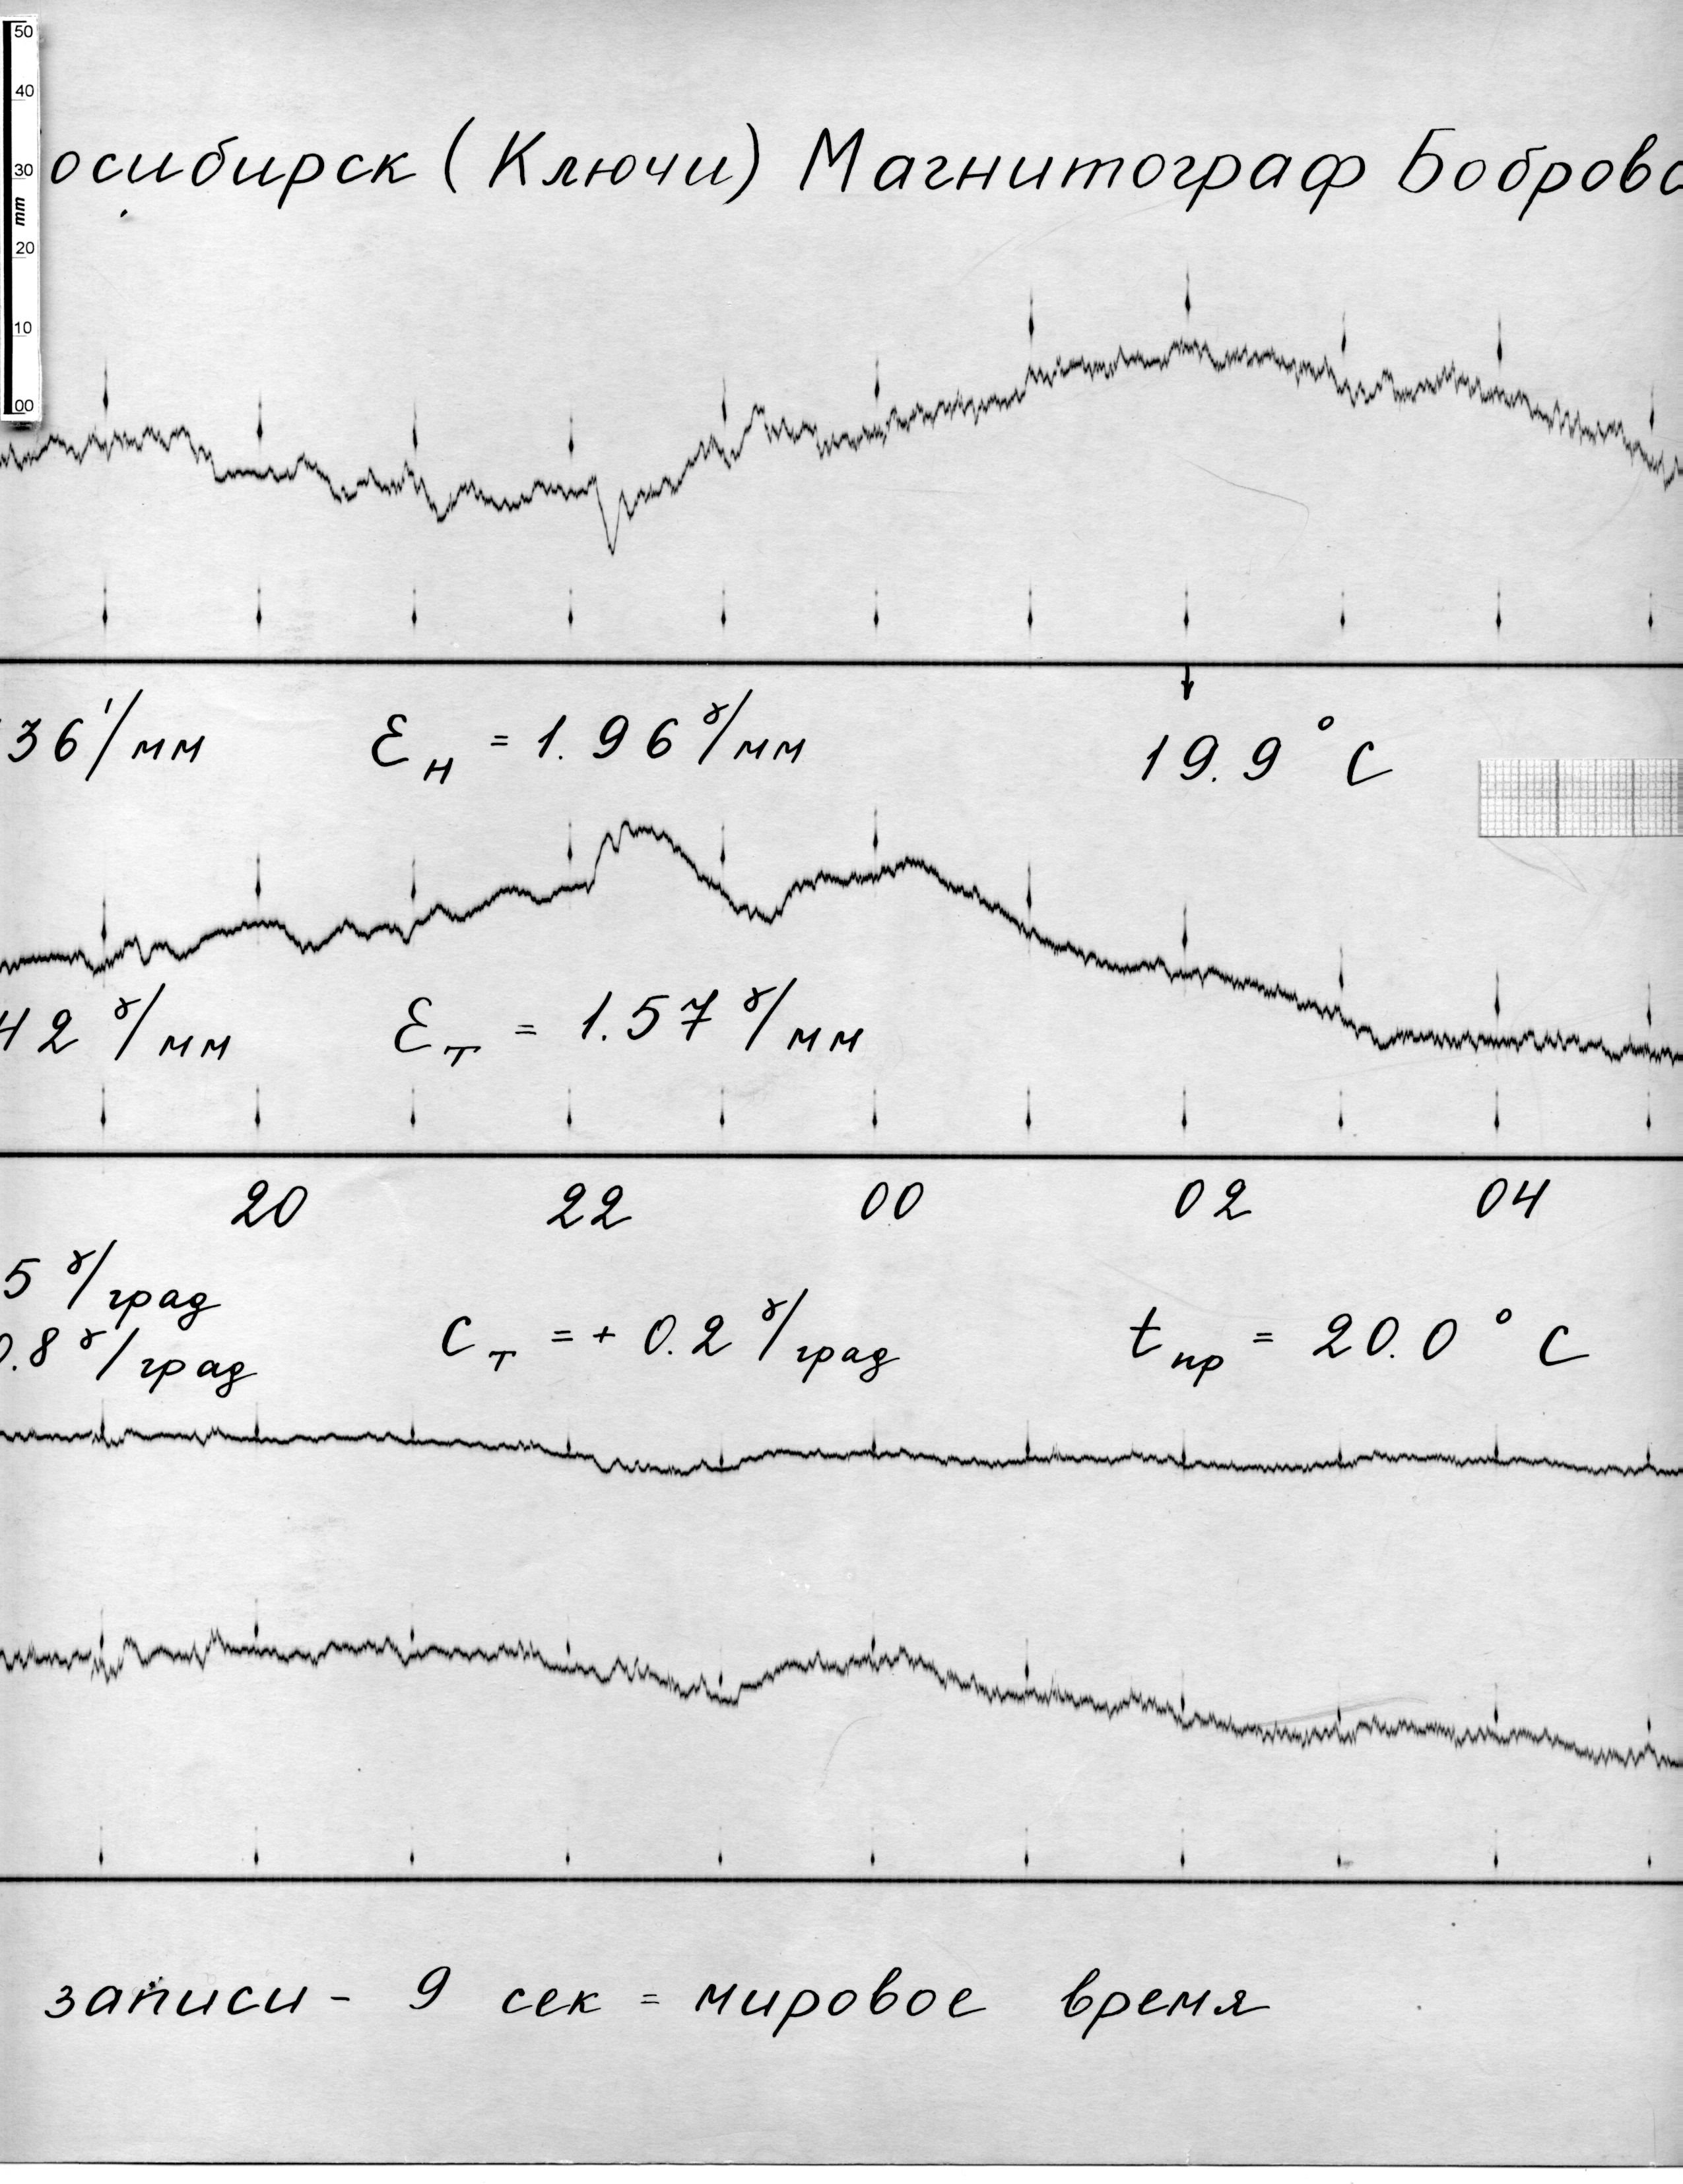 50
40
30
mm
20
10
00
осибирск (Ключи) Магнитограф Боброва
36'/мм Ɛн = 1.96 ɣ/мм 19.9°C
42 ɣ/мм Ɛт = 1.57 ɣ/мм
20 22 00 02 04
5 ɣ/град
0.8 ɣ/град Cт = + 0.2 ɣ/град tпр = 20.0°C
записи - 9 сек = мировое время